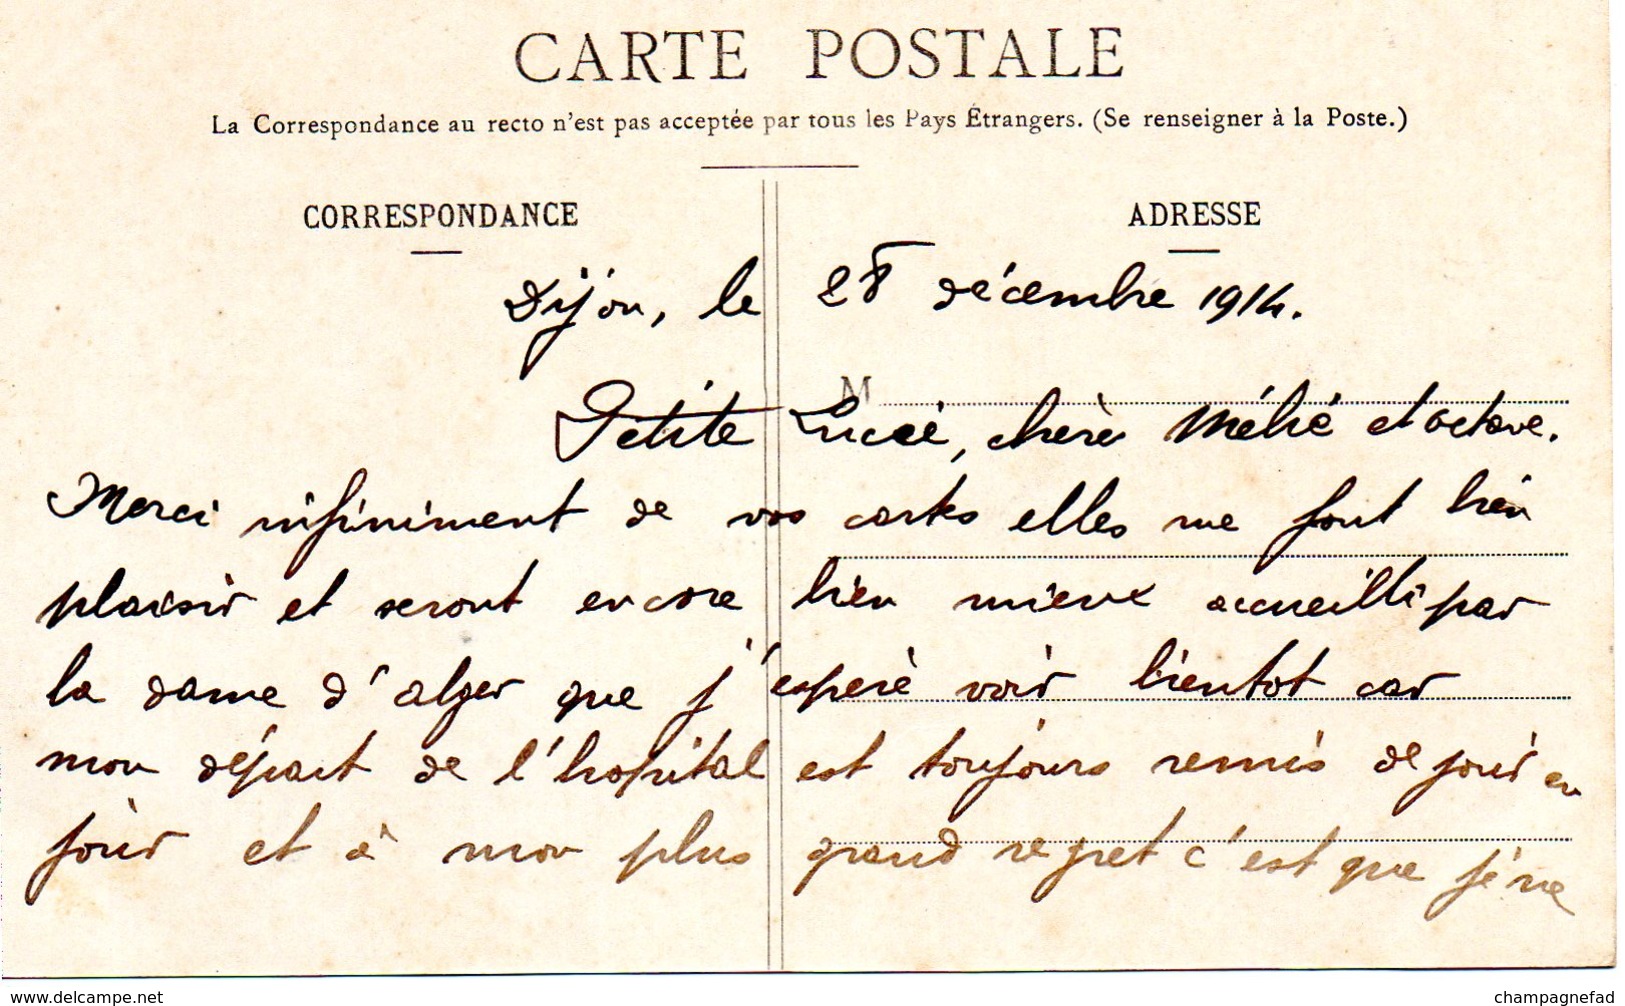 CARTE POSTALE
La Correspondance au recto n'est pas acceptée par tous les Pays Étrangers. (Se renseigner à la Poste.)
CORRESPONDANCE
ADRESSE
Dijon, le 28 décembre 1914.
M
Petite Lucie, chère Mélie et octave.
Merci infiniment de vos cartes elles me font bien
plaisir et seront encore bien mieux accueilli par
la dame d'alger que j'espère voir bientot car
mon départ de l'hopital est toujours remis de jour en
jour et à mon plus grand regret c'est que je ne
www.delcampe.net
champagnefad